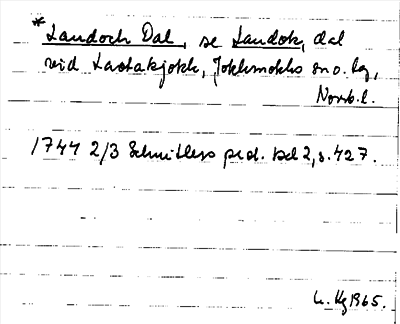 *Landoch Dal, se Landok, dal
vid Lastakjokk, Jokkmokks sn o. lg,
Norrb. l.
1744 2/3 Schnitlers prot. bd 2, s. 427.
L. Hg 1965.